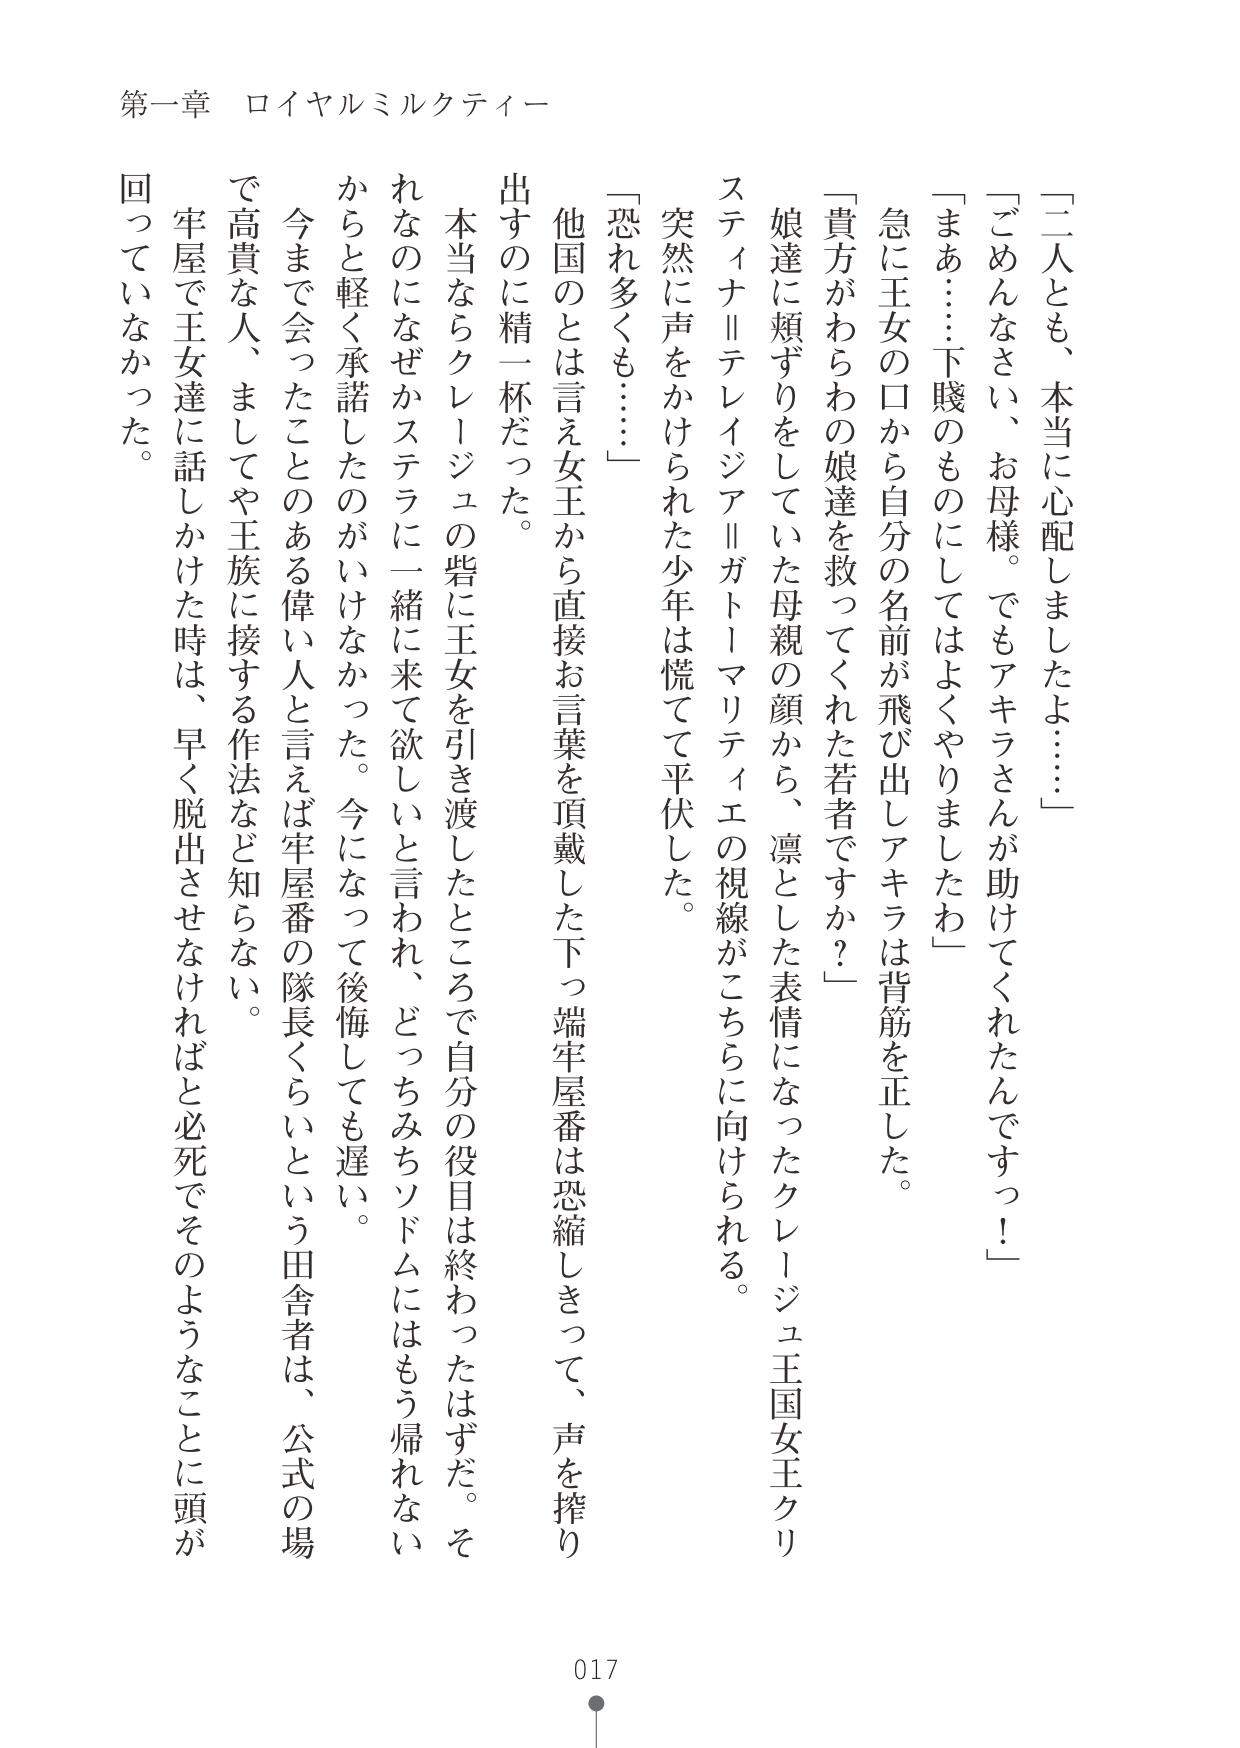 第一章　ロイヤルミルクティー
「二人とも、本当に心配しましたよ……」
「ごめんなさい、お母様。でもアキラさんが助けてくれたんですっ！」
「まあ……下賤のものにしてはよくやりましたわ」
　急に王女の口から自分の名前が飛び出しアキラは背筋を正した。
「貴方がわらわの娘達を救ってくれた若者ですか？」
　娘達に頬ずりをしていた母親の顔から、凛とした表情になったクレージュ王国女王クリ
スティナ＝テレイジア＝ガトーマリティエの視線がこちらに向けられる。
　突然に声をかけられた少年は慌てて平伏した。
「恐れ多くも……」
　他国のとは言え女王から直接お言葉を頂戴した下っ端牢屋番は恐縮しきって、声を搾り
出すのに精一杯だった。
　本当ならクレージュの砦に王女を引き渡したところで自分の役目は終わったはずだ。そ
れなのになぜかステラに一緒に来て欲しいと言われ、どっちみちソドムにはもう帰れない
からと軽く承諾したのがいけなかった。今になって後悔しても遅い。
　今まで会ったことのある偉い人と言えば牢屋番の隊長くらいという田舎者は、公式の場
で高貴な人、ましてや王族に接する作法など知らない。
　牢屋で王女達に話しかけた時は、早く脱出させなければと必死でそのようなことに頭が
回っていなかった。
017